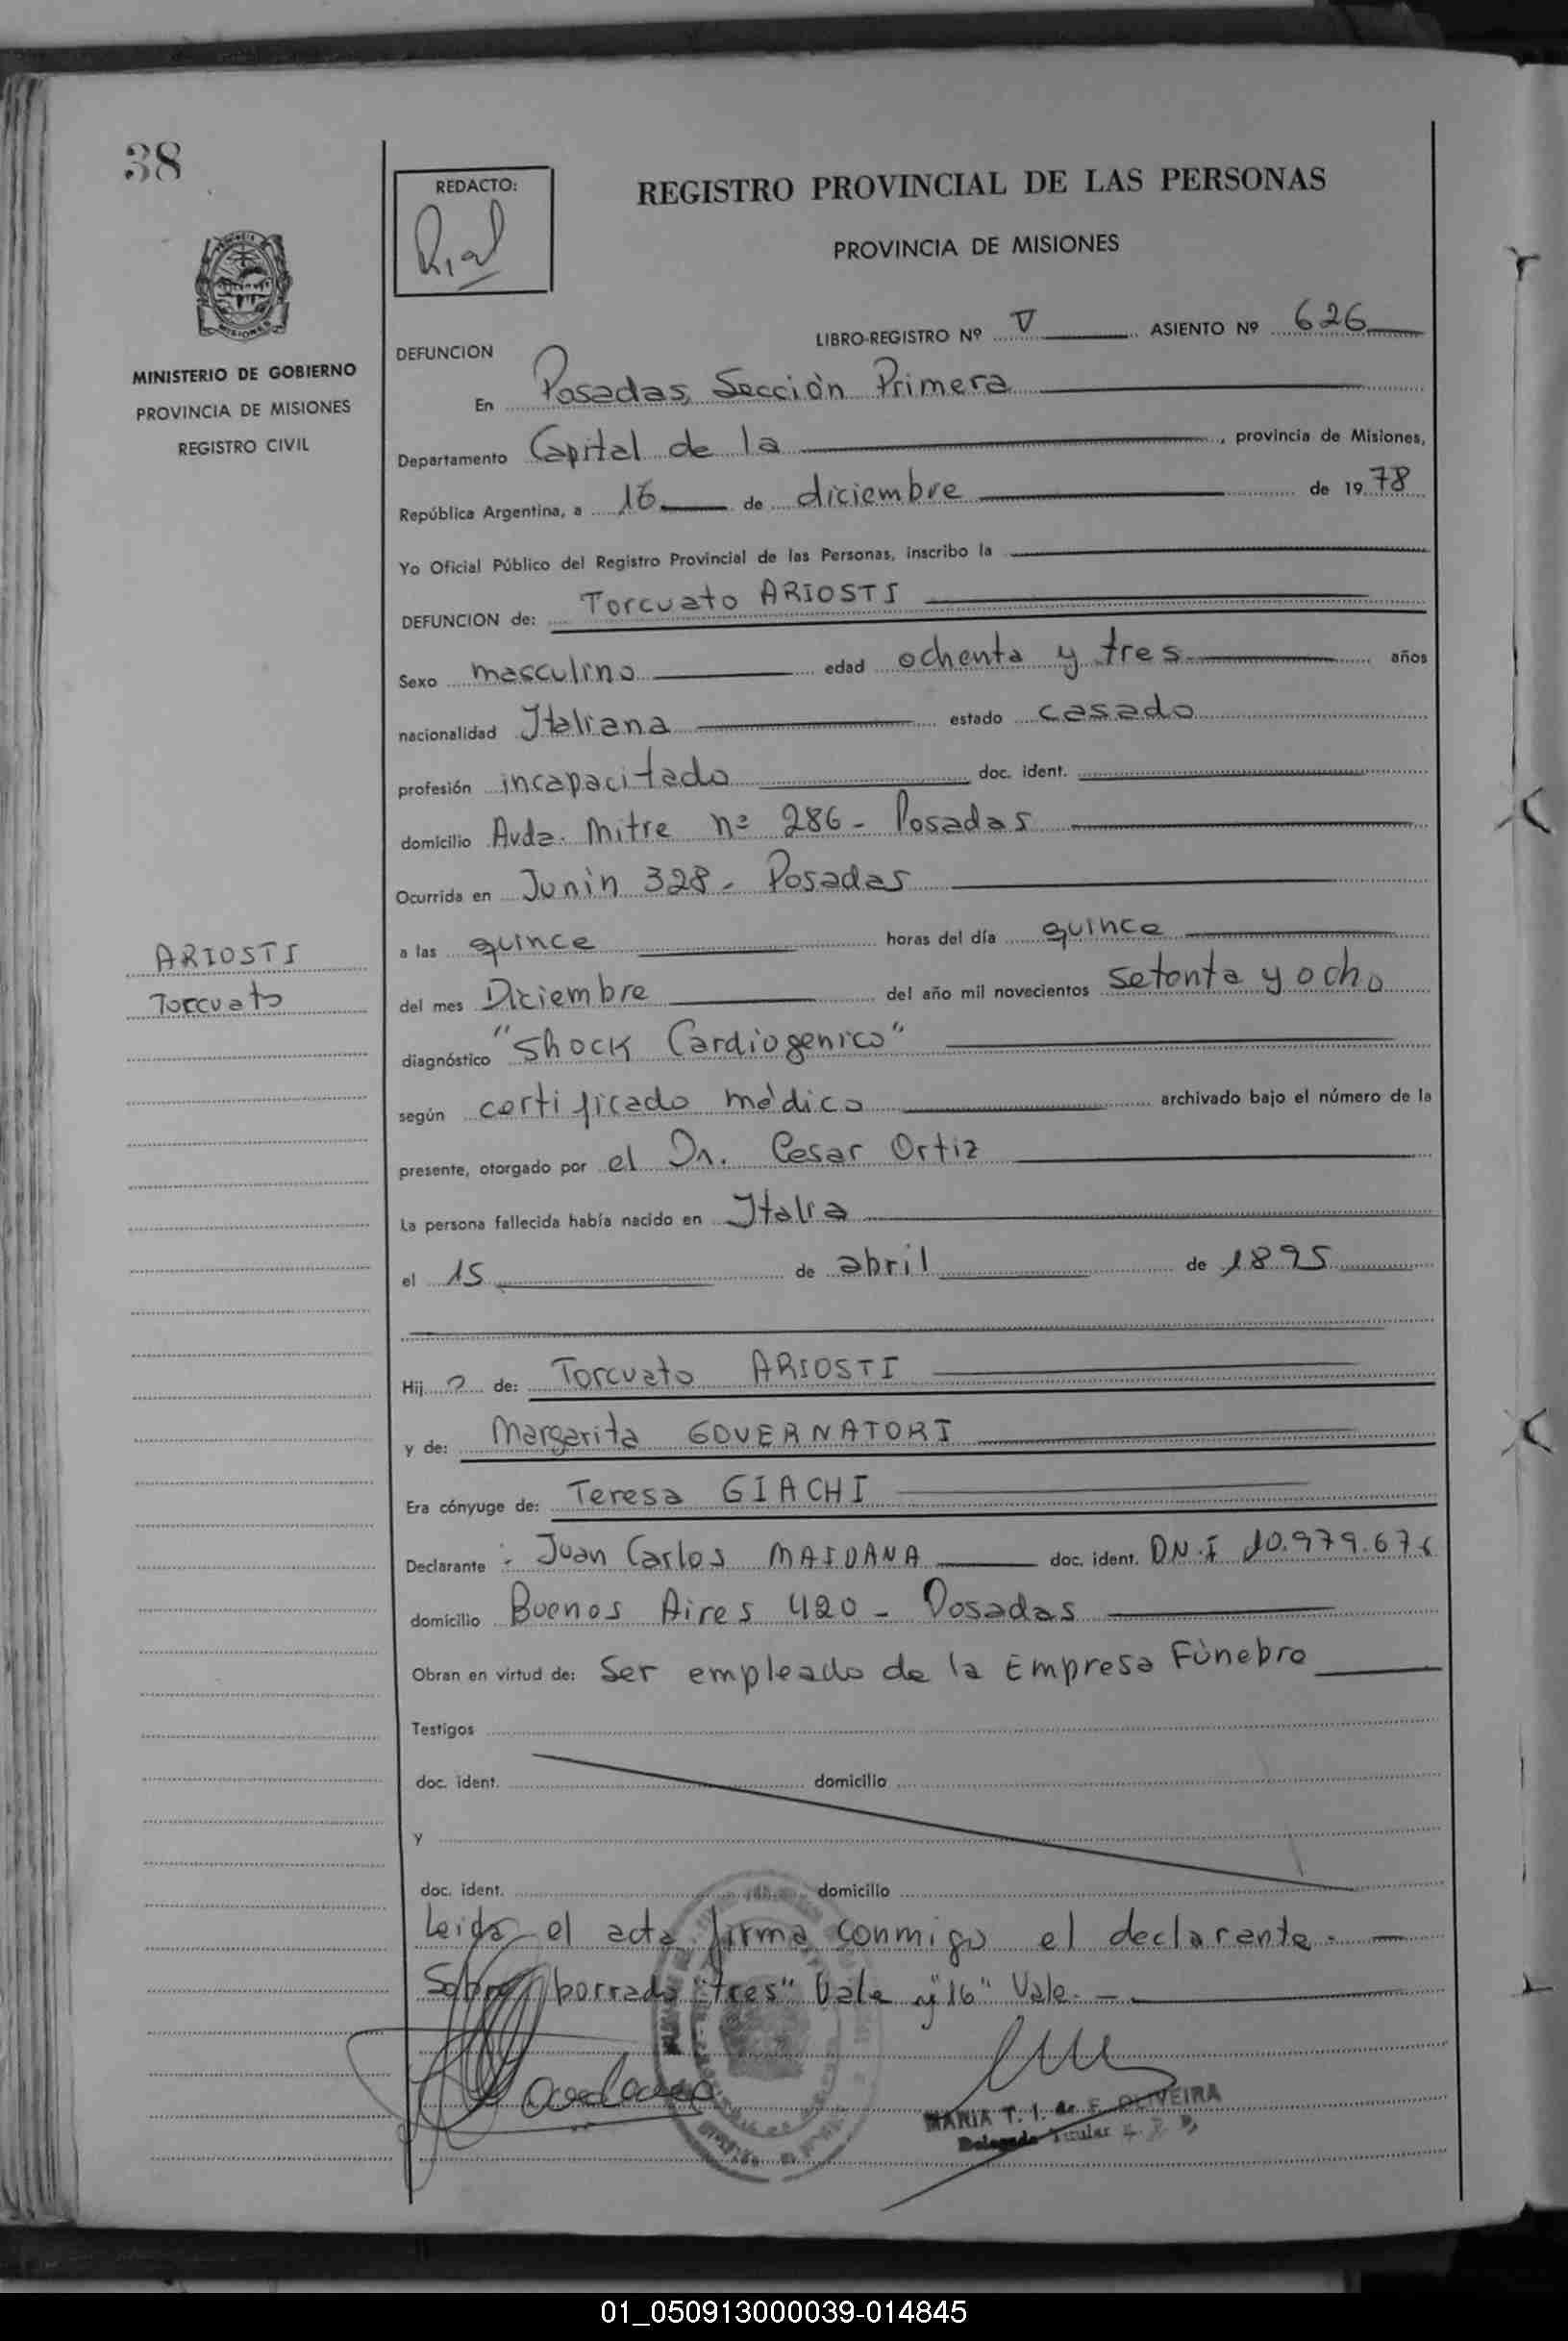 38
REDACTO:
Rial
REGISTRO PROVINCIAL DE LAS PERSONAS
PROVINCIA DE MISIONES
MISIONES
MINISTERIO DE GOBIERNO
PROVINCIA DE MISIONES
REGISTRO CIVIL
LIBRO-REGISTRO Nº V ASIENTO Nº 626
DEFUNCION
En Posadas, Sección Primera
Departamento Capital de la, provincia de Misiones,
República Argentina, a 16 de diciembre de 1978
Yo Oficial Público del Registro Provincial de las Personas, inscribo la
DEFUNCION de: Torcuato ARIOSTI
Sexo masculino edad ochenta y tres años
nacionalidad Italiana estado casado
profesión incapacitado doc. ident.
domicilio Avda. Mitre nº 286 - Posadas
Ocurrida en Junin 328 - Posadas
ARIOSTI
Torcuato
a las quince horas del día quince
del mes Diciembre del año mil novecientos setenta y ocho
diagnóstico "Shock Cardiogenico"
según certificado médico archivado bajo el número de la
presente, otorgado por el Dr. Cesar Ortiz
La persona fallecida había nacido en Italia
el 15 de abril de 1895
Hijo de: Torcuato ARIOSTI
y de: Margarita GOVERNATORI
Era cónyuge de: Teresa GIACHI
Declarante: Juan Carlos MAIDANA doc. ident. DN.I 10.979.676
domicilio Buenos Aires 420 - Posadas
Obran en virtud de: Ser empleado de la Empresa Fùnebre
Testigos
doc. ident. domicilio
y
doc. ident. domicilio
Leida el acta, firma conmigo el declarante. —
Sobre borrado "tres" Vale y "16" Vale. —
MARIA T. I. de F. OLIVEIRA
Delegada Titular
01_050913000039-014845